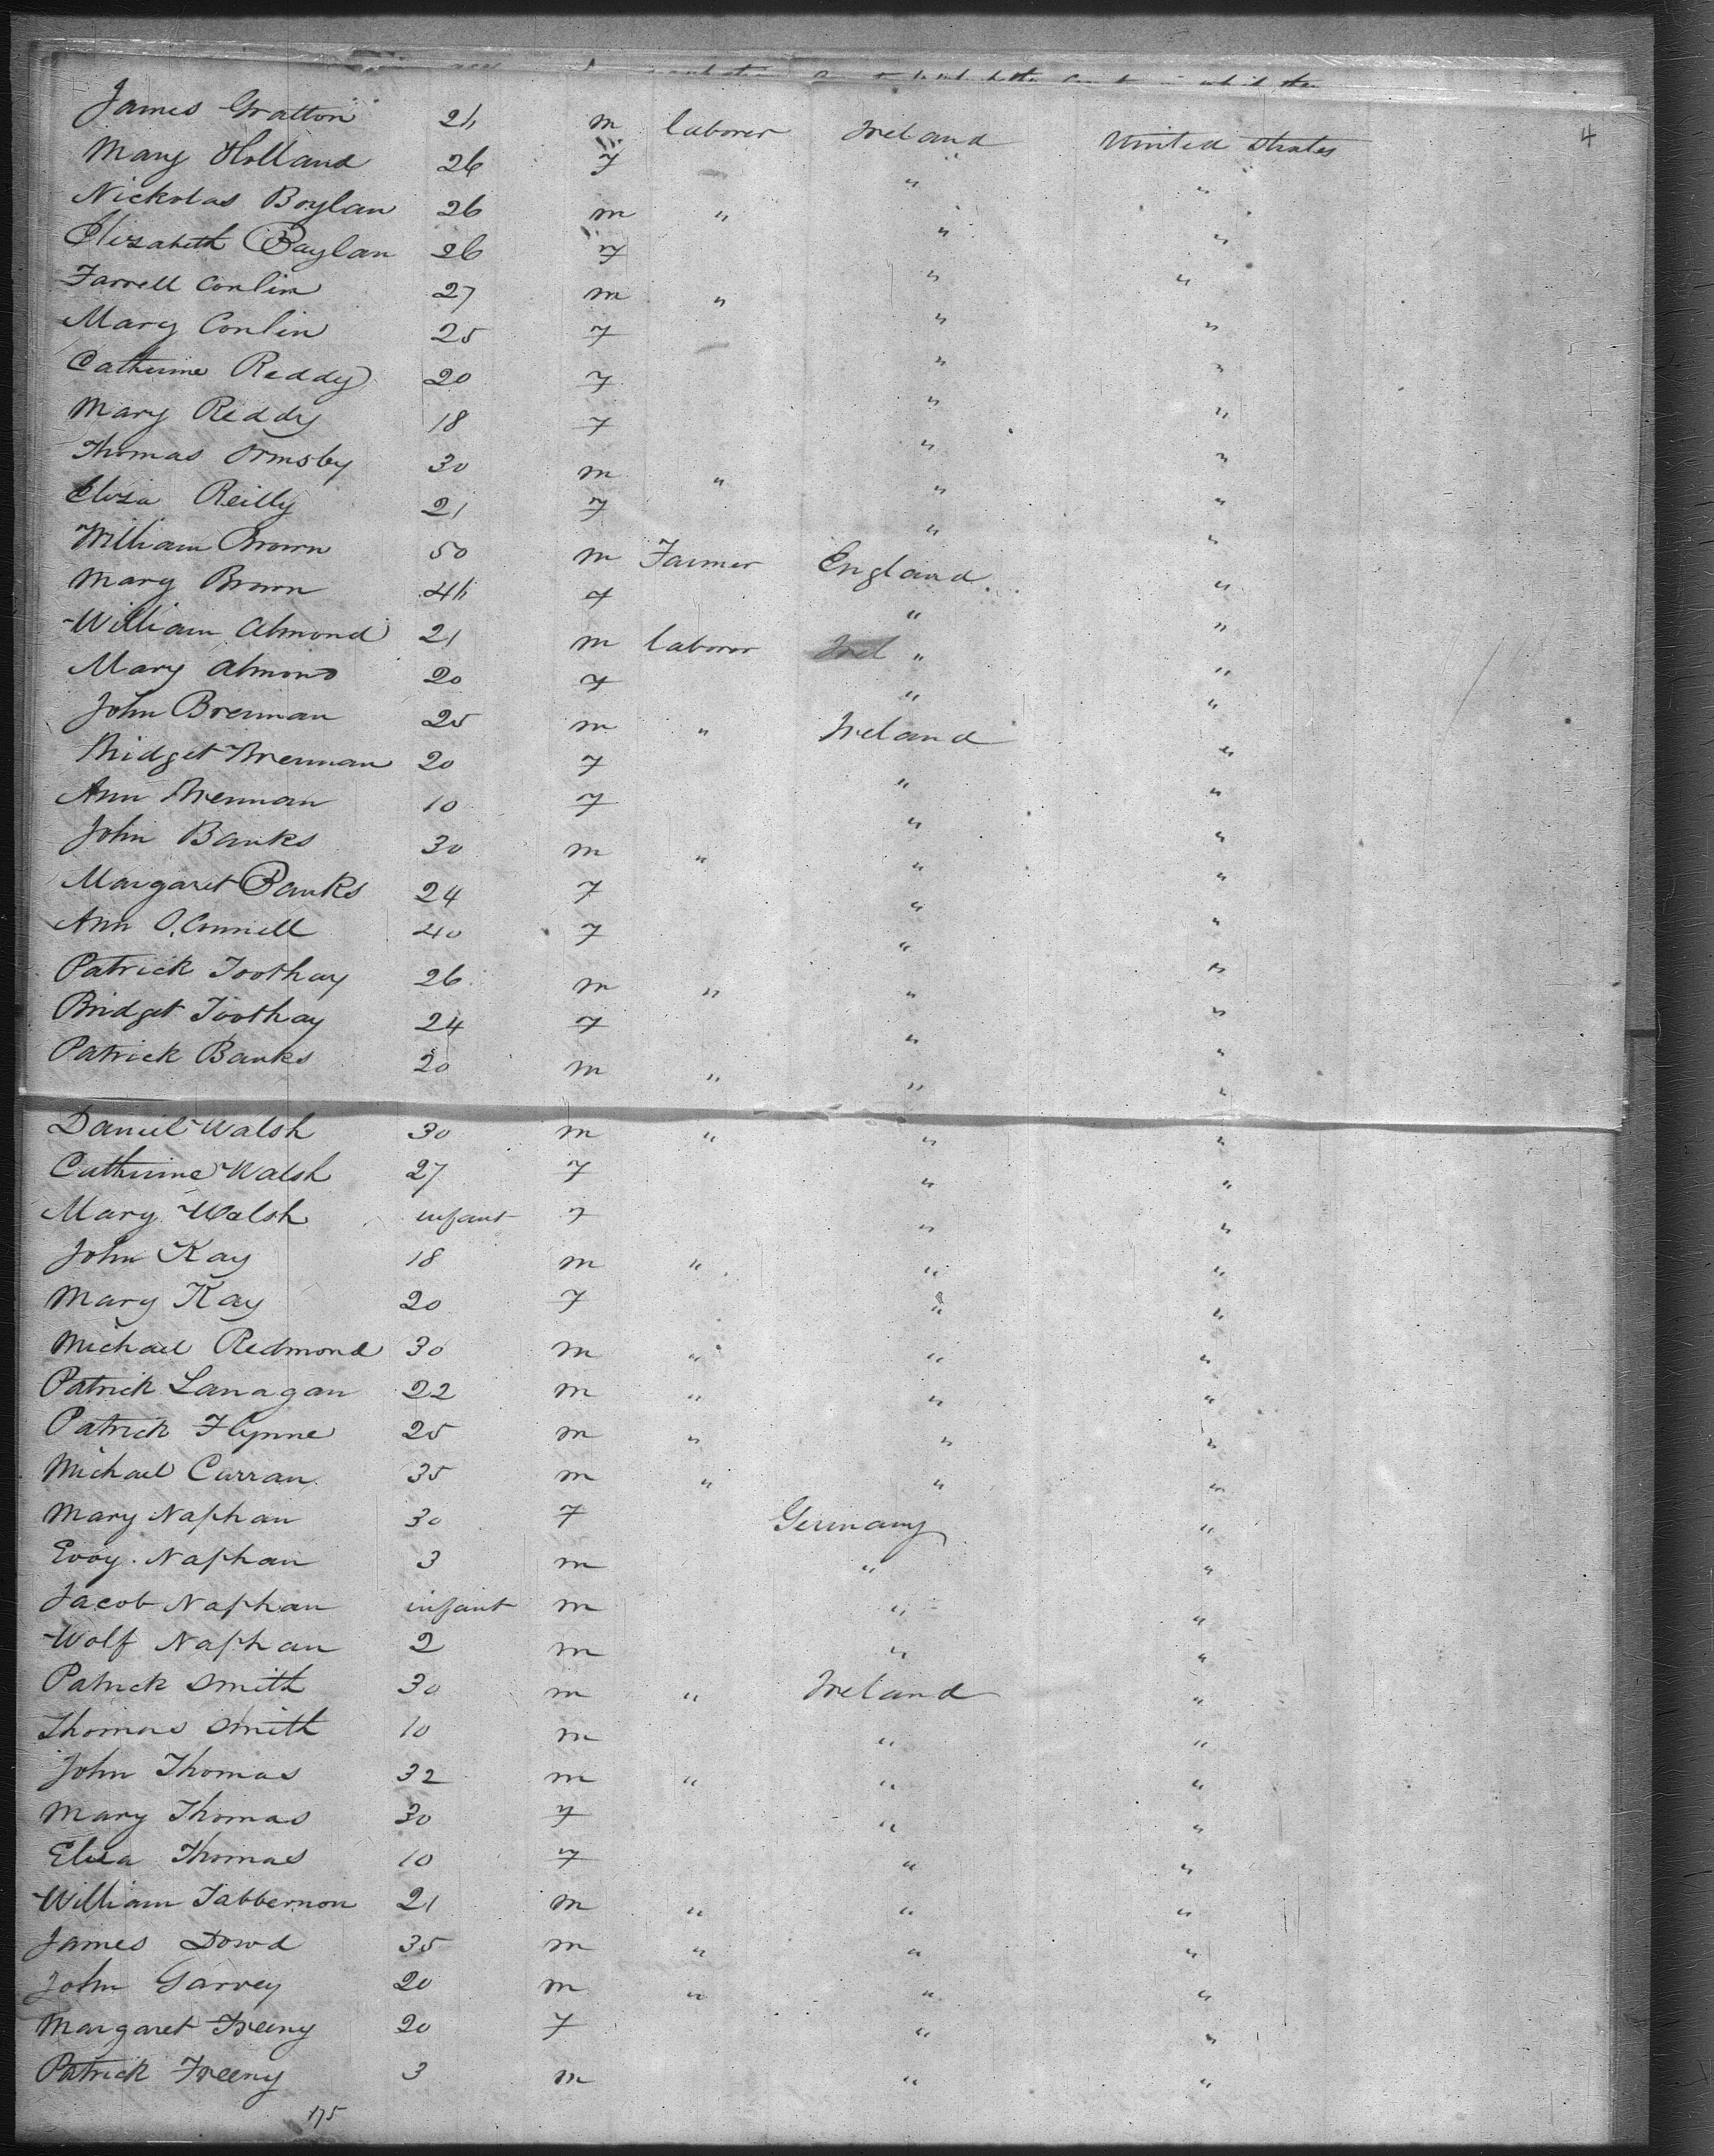 4
James Gratton 24 m laborer Ireland United States
Mary Holland 26 f " "
Nickolas Boylan 26 m " " "
Elizabeth Baylan 26 f " "
Farrell Conlin 27 m " " "
Mary Conlin 25 f " "
Catherine Reddy 20 f " "
Mary Reddy 18 f " "
Thomas Ormsby 30 m " " "
Eliza Reilly 21 f " "
William Brown 50 m Farmer England "
Mary Brown 44 f " "
William Almond 21 m laborer " "
Mary Almond 20 f " "
John Brennan 25 m " Ireland "
Bridget Brennan 20 f " "
Ann Brennan 10 f " "
John Banks 30 m " " "
Margaret Banks 24 f " "
Ann O.Connell 40 f " "
Patrick Toothay 26 m " " "
Bridget Toothay 24 f " "
Patrick Banks 20 m " " "
Daniel Walsh 30 m " " "
Catherine Walsh 27 f " "
Mary Walsh infant f " "
John Kay 18 m " " "
Mary Kay 20 f " "
Michael Redmond 30 m " " "
Patrick Lanagan 22 m " " "
Patrick Flynne 25 m " " "
Michael Curran 35 m " " "
Mary Naphan 30 f Germany "
Naphan 3 m " "
Jacob Naphan infant m " "
Wolf Naphan 2 m " "
Patrick Smith 30 m " Ireland "
Thomas Smith 10 m " "
John Thomas 32 m " " "
Mary Thomas 30 f " "
Eliza Thomas 10 f " "
William Tabbernon 21 m " " "
James Dowd 35 m " " "
John Garvey 20 m " " "
Margaret Freeny 20 f " "
Patrick Freeny 3 m " "
175